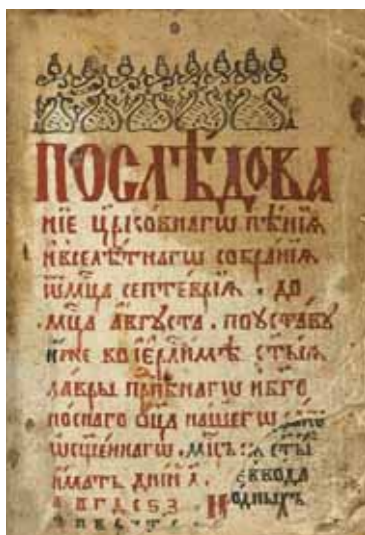 ПОСЛѢ́ДОВА
НІЕ ЦР҃КО́ВНАГѠ ПѢ́НІѦ
И҆ ВСЕЛѢ́ТНАГѠ СОБРА́НІѦ
Ѿ МЦ҃А СЕПТЕ́ВРІѦ . ДО
МЦ҃А А҆́ВГУСТА . ПО У҆СТА́ВУ
И҆́ЖЕ ВО І҆ЕР҃ЛИ́МѢ СТ҃Ы́Ѧ
ЛА́ВРЫ ПРПⷣБНАГѠ И҆ БГО
НО́СНАГО Ѻ҆ЦА̀ НА́ШЕГѠ
Ѡ҆СЩ҃Е́ННАГѠ . МЦ҃Ъ
И҆́МАТЬ ДНІ́Й Л҃ .
А В Г Д Е Ѕ З